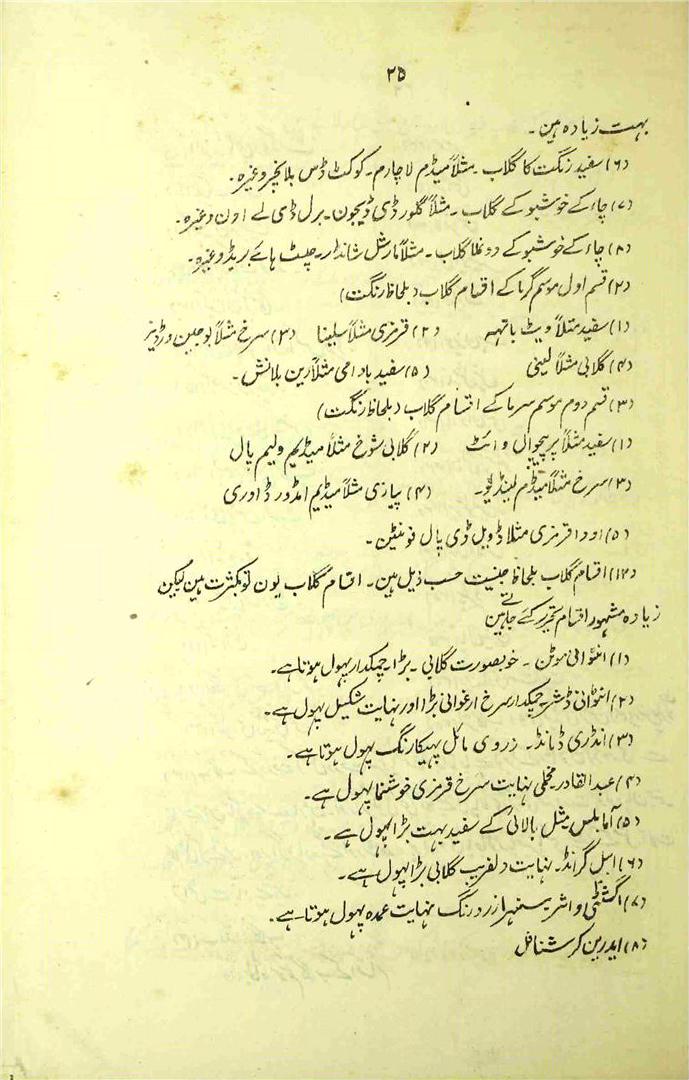 ۲۵
بہت زیادہ ہین۔
(۶) سفید رنگت کا گلاب۔ مثلاً میڈم لا چارم۔ کوکٹ ڈس بلانچر وغیرہ۔
(۷) چاء کے خوشبو کے گلاب۔ مثلاً گلور ڈی ڈیجون۔ پرل ڈی لے اون وغیرہ۔
(۸) چاء کے خوشبو کے دوغلا گلاب۔ مثلاً مارشل شاندار۔ چسٹ ہائے بریڈ وغیرہ۔
(۲) قسم اول موسم گرما کے اقسام گلاب (بلحاظ رنگت)
(۱) سفید مثلاً ویٹ باتھہ (۲) قرمزی مثلاً سلینا (۳) سرخ مثلاً یوجین ورڈیر
(۴) گلابی مثلاً لینی (۵) سفید بادامی مثلاً رین بلانش۔
(۳) قسم دوم موسم سرما کے اقسام گلاب (بلحاظ رنگت)
(۱) سفید مثلاً پرپیچوال وائٹ (۲) گلابی شوخ مثلاً میڈیم ولیم پال
(۳) سرخ مثلاً میڈم لینڈیو۔ (۴) پیازی مثلاً میڈیم امڈور ڈاوری
(۵) اودا قرمزی مثلاً ڈوبل ڈی پال فونٹین۔
(۱۴) اقسام گلاب بلحاظ جنیت حسب ذیل ہین۔ اقسام گلاب یون تو بکثرت ہین لیکن
زیادہ مشہور اقسام تحریر کئے جاتے ہین
(۱) انٹوانی موٹن۔ خوبصورت گلابی۔ بڑا۔ چمکدار پہول ہوتا ہے۔
(۲) انٹوانی ڈشر چمکدار سرخ ارغوانی بڑا اور نہایت شکیل پہول ہے۔
(۳) انڈری ڈہانڈ۔ زردی مائل پہیکا رنگ پہول ہوتا ہے۔
(۴) عبدالقادر مخملی نہایت سرخ قرمزی خوشنما پہول ہے۔
(۵) آمابلس مثل بالائی کے سفید بہت بڑا پہول ہے۔
(۶) ابل گرانڈ۔ نہایت دلفریب گلابی بڑا پہول ہے۔
(۷) اگسٹی واشر یسنہرا زرد رنگ نہایت عمدہ پہول ہوتا ہے۔
(۸) ایدرین کرسٹافل